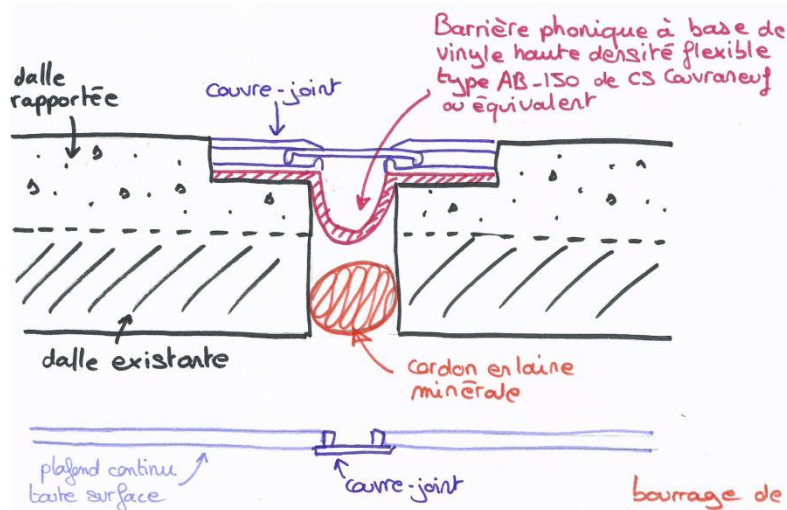 Barrière phonique à base de
vinyle haute densité flexible
type AB-ISO de CS Couvraneuf
ou équivalent
dalle
rapportée
couvre-joint
dalle existante
cordon en laine
minérale
plafond continu
toute surface
couvre-joint
bourrage de